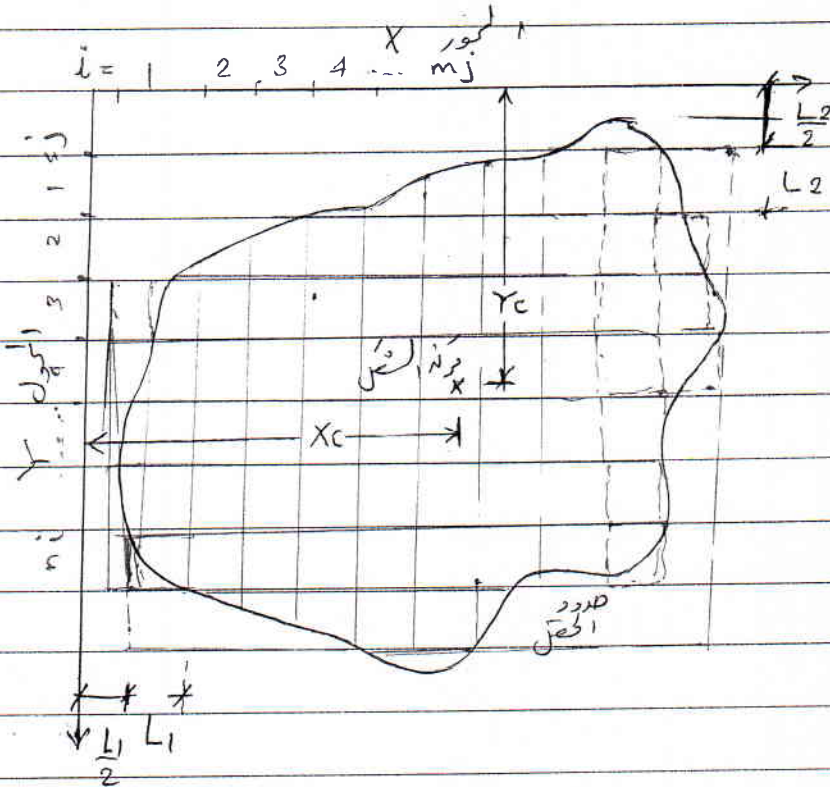 المحور X
i = 1 2 3 4 ... mj
L2/2
L2
j =
1
2
3
ni
المحور Y
Yc
مركز الثقل
x
Xc
حدود الحقل
L1/2 L1